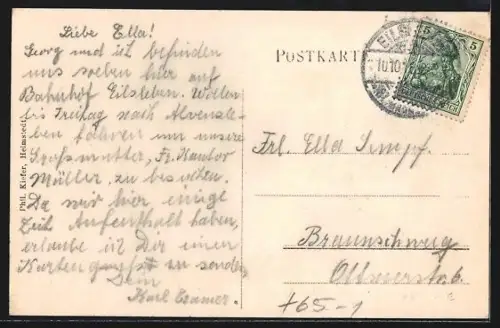 Liebe Ella!
Georg und ich befinden
uns soeben hier auf
Bahnhof Eilsleben. Wollen
bis Freitag nach Alvensle-
ben fahren um unsere
Grossmutter, Fr. Kantor
Müller, zu besuchen.
Da wir hier einige
Zeit Aufenthalt haben,
erlaube ich Dir einen
Kartengruss zu senden.
Dein
Karl Cramer.
Phil. Kiefer, Helmstedt
POSTKARTE
5 5
10.10
Frl. Ella Sempf.
Braunschweig
+65-1